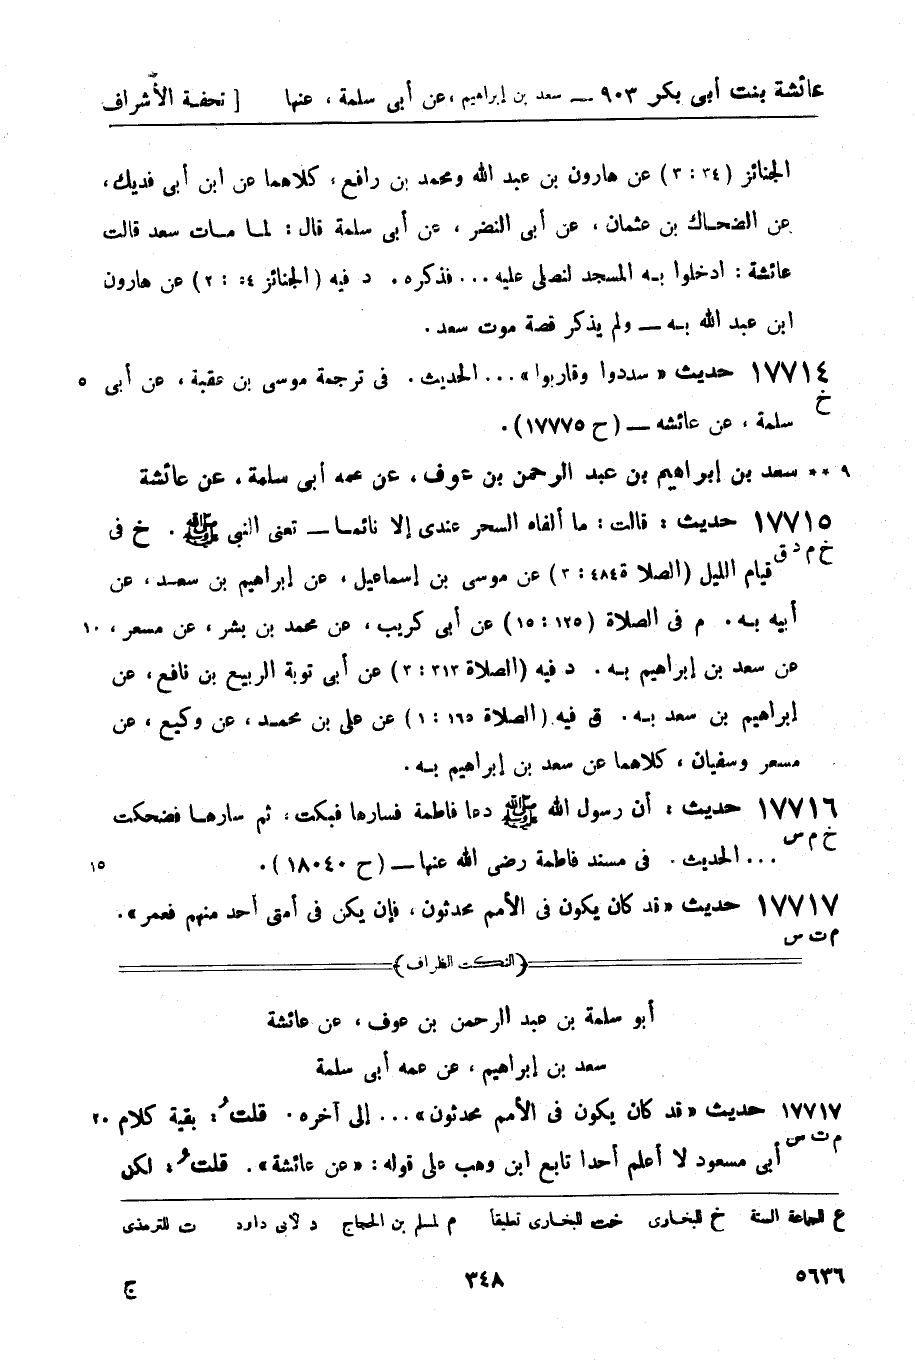 عائشة بنت أبى بكر ٩٠٣ — سعد بن إبراهيم ، عن أبى سلمة ، عنها [ تحفة الأشراف
الجنائز (٣٤ : ٣) عن هارون بن عبد الله ومحمد بن رافع ، كلاهما عن ابن أبى فديك ،
عن الضحاك بن عثمان ، عن أبى النضر ، عن أبى سلمة قال : لما مات سعد قالت
عائشة : ادخلوا به المسجد لنصلى عليه ... فذكره . د فيه (الجنائز : ٢) عن هارون
ابن عبد الله به — ولم يذكر قصة موت سعد .
١٧٧١٤ حديث « سددوا وقاربوا » ... الحديث . فى ترجمة موسى بن عقبة ، عن أبى ٥
خ
سلمة ، عن عائشه — (ح ١٧٧٧٥) .
٩ ** سعد بن إبراهيم بن عبد الرحمن بن عوف ، عن عمه أبى سلمة ، عن عائشة
١٧٧١٥ حديث : قالت : ما ألفاه السحر عندى إلا نائما — تعنى النبى ﷺ . خ فى
خ م د ق
قيام الليل (الصلاة ٤٨٤ : ٣) عن موسى بن إسماعيل ، عن إبراهيم بن سعد ، عن
أبيه به . م فى الصلاة (١٢٥ : ١٥) عن أبى كريب ، عن محمد بن بشر ، عن مسعر ، ١٠
عن سعد بن إبراهيم به . د فيه (الصلاة ٣١٣ : ٣) عن أبى توبة الربيع بن نافع ، عن
إبراهيم بن سعد به . ق فيه (الصلاة ١٦٥ : ١) عن على بن محمد ، عن وكيع ، عن
مسعر وسفيان ، كلاهما عن سعد بن إبراهيم به .
١٧٧١٦ حديث : أن رسول الله ﷺ دعا فاطمة فسارها فبكت ، ثم سارها فضحكت
خ م س
... الحديث . فى مسند فاطمة رضى الله عنها — (ح ١٨٠٤٠) . ١٥
١٧٧١٧ حديث « قد كان يكون فى الأمم محدثون ، فإن يكن فى أمتى أحد منهم فعمر » .
م ت س
(النكت الظراف)
أبو سلمة بن عبد الرحمن بن عوف ، عن عائشة
سعد بن إبراهيم ، عن عمه أبى سلمة
١٧٧١٧ حديث « قد كان يكون فى الأمم محدثون » ... إلى آخره . قلتُ : بقية كلام ٢٠
م ت س
أبى مسعود لا أعلم أحدا تابع ابن وهب على قوله : « عن عائشة » . قلتُ : لكن
ع للجماعة الستة خ للبخارى خت للبخارى تعليقاً م لمسلم بن الحجاج د لأبى داود ت للترمذى
٥٦٣٦ ٣٤٨ ج